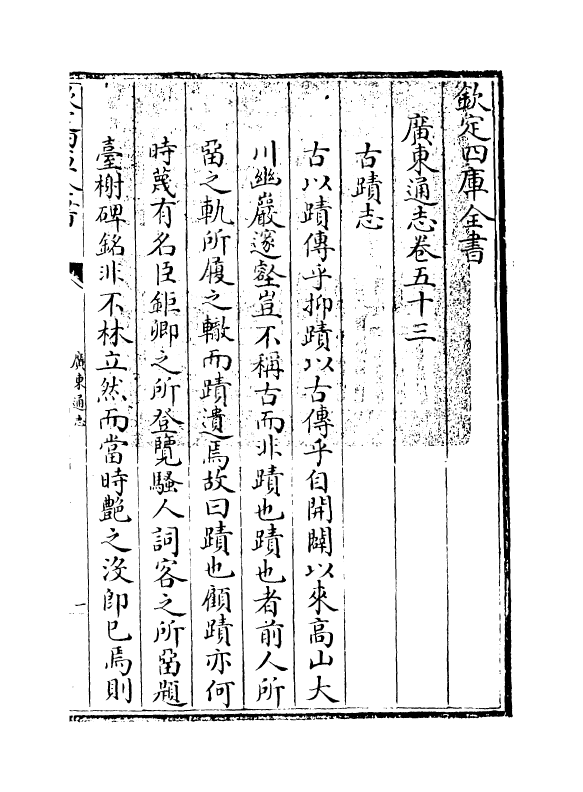 欽定四庫全書
廣東通志卷五十三
古蹟志
古以蹟傳乎抑蹟以古傳乎自開闢以來高山大
川幽巖邃壑豈不稱古而非蹟也蹟也者前人所
留之軌所履之轍而蹟遺焉故曰蹟也顧蹟亦何
時蔑有名臣鉅卿之所登覽騷人詞客之所留題
臺榭碑銘非不林立然而當時艶之沒卽已焉則
廣東通志
一